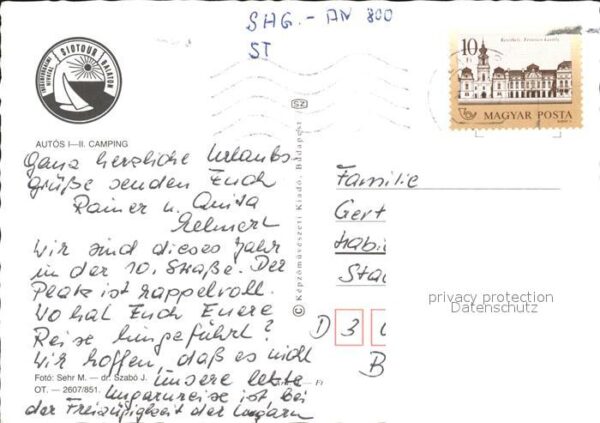 SHG.-AN 800
ST
IDEGENFORGALMI HIVATAL SIOTOUR BALATON
10 Keszthely, Festetics-kastély
MAGYAR POSTA
AUTÓS I—II. CAMPING
Ganz herzliche Urlaubs-
grüße senden Euch
Rainer u. Anita
Wir sind dieses Jahr
in der 10. Straße. Der
Platz ist rappelvoll.
Wo hat Euch Euere
Reise hingeführt?
Wir hoffen, daß es nicht
unsere letzte
Ungarnreise ist bei
der Freizügigkeit der Ungarn
Fotó: Sehr M. — dr. Szabó J.
OT. — 2607/851.
SZ
© Képzőművészeti Kiadó, Budapest
Familie
Gert
Habi
Sta
D 3
B
privacy protection
Datenschutz